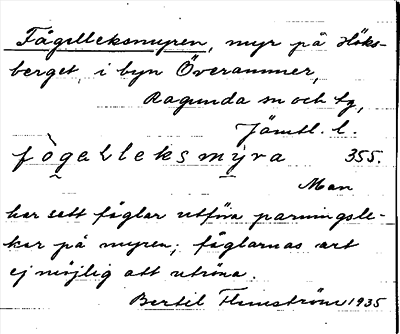 Fågelleksmyren, myr på Höks-
berget i byn Överammer,
Ragunda sn och tg,
Jämtl. l.
fògəlleksmyra 355.
Man
har sett fåglar utföra parningsle-
kar på myren; fåglarnas art
ej möjlig att utröna.
Bertil Flemström 1935